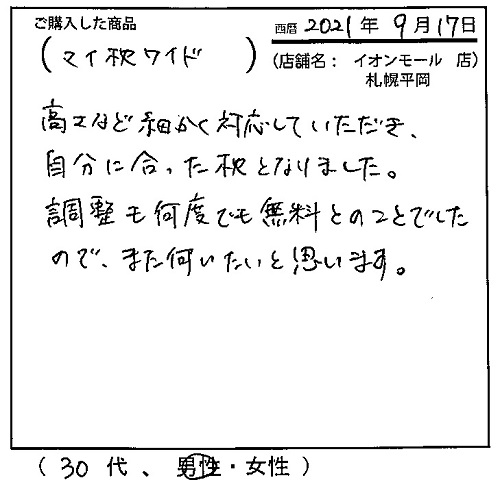 ご購入した商品
西暦 2021年 9月17日
(マイ枕ワイド)
(店舗名： イオンモール 店)
札幌平岡
高さなど細かく対応していただき、
自分に合った枕となりました。
調整も何度でも無料とのことでした
ので、また伺いたいと思います。
(30代、男性・女性)